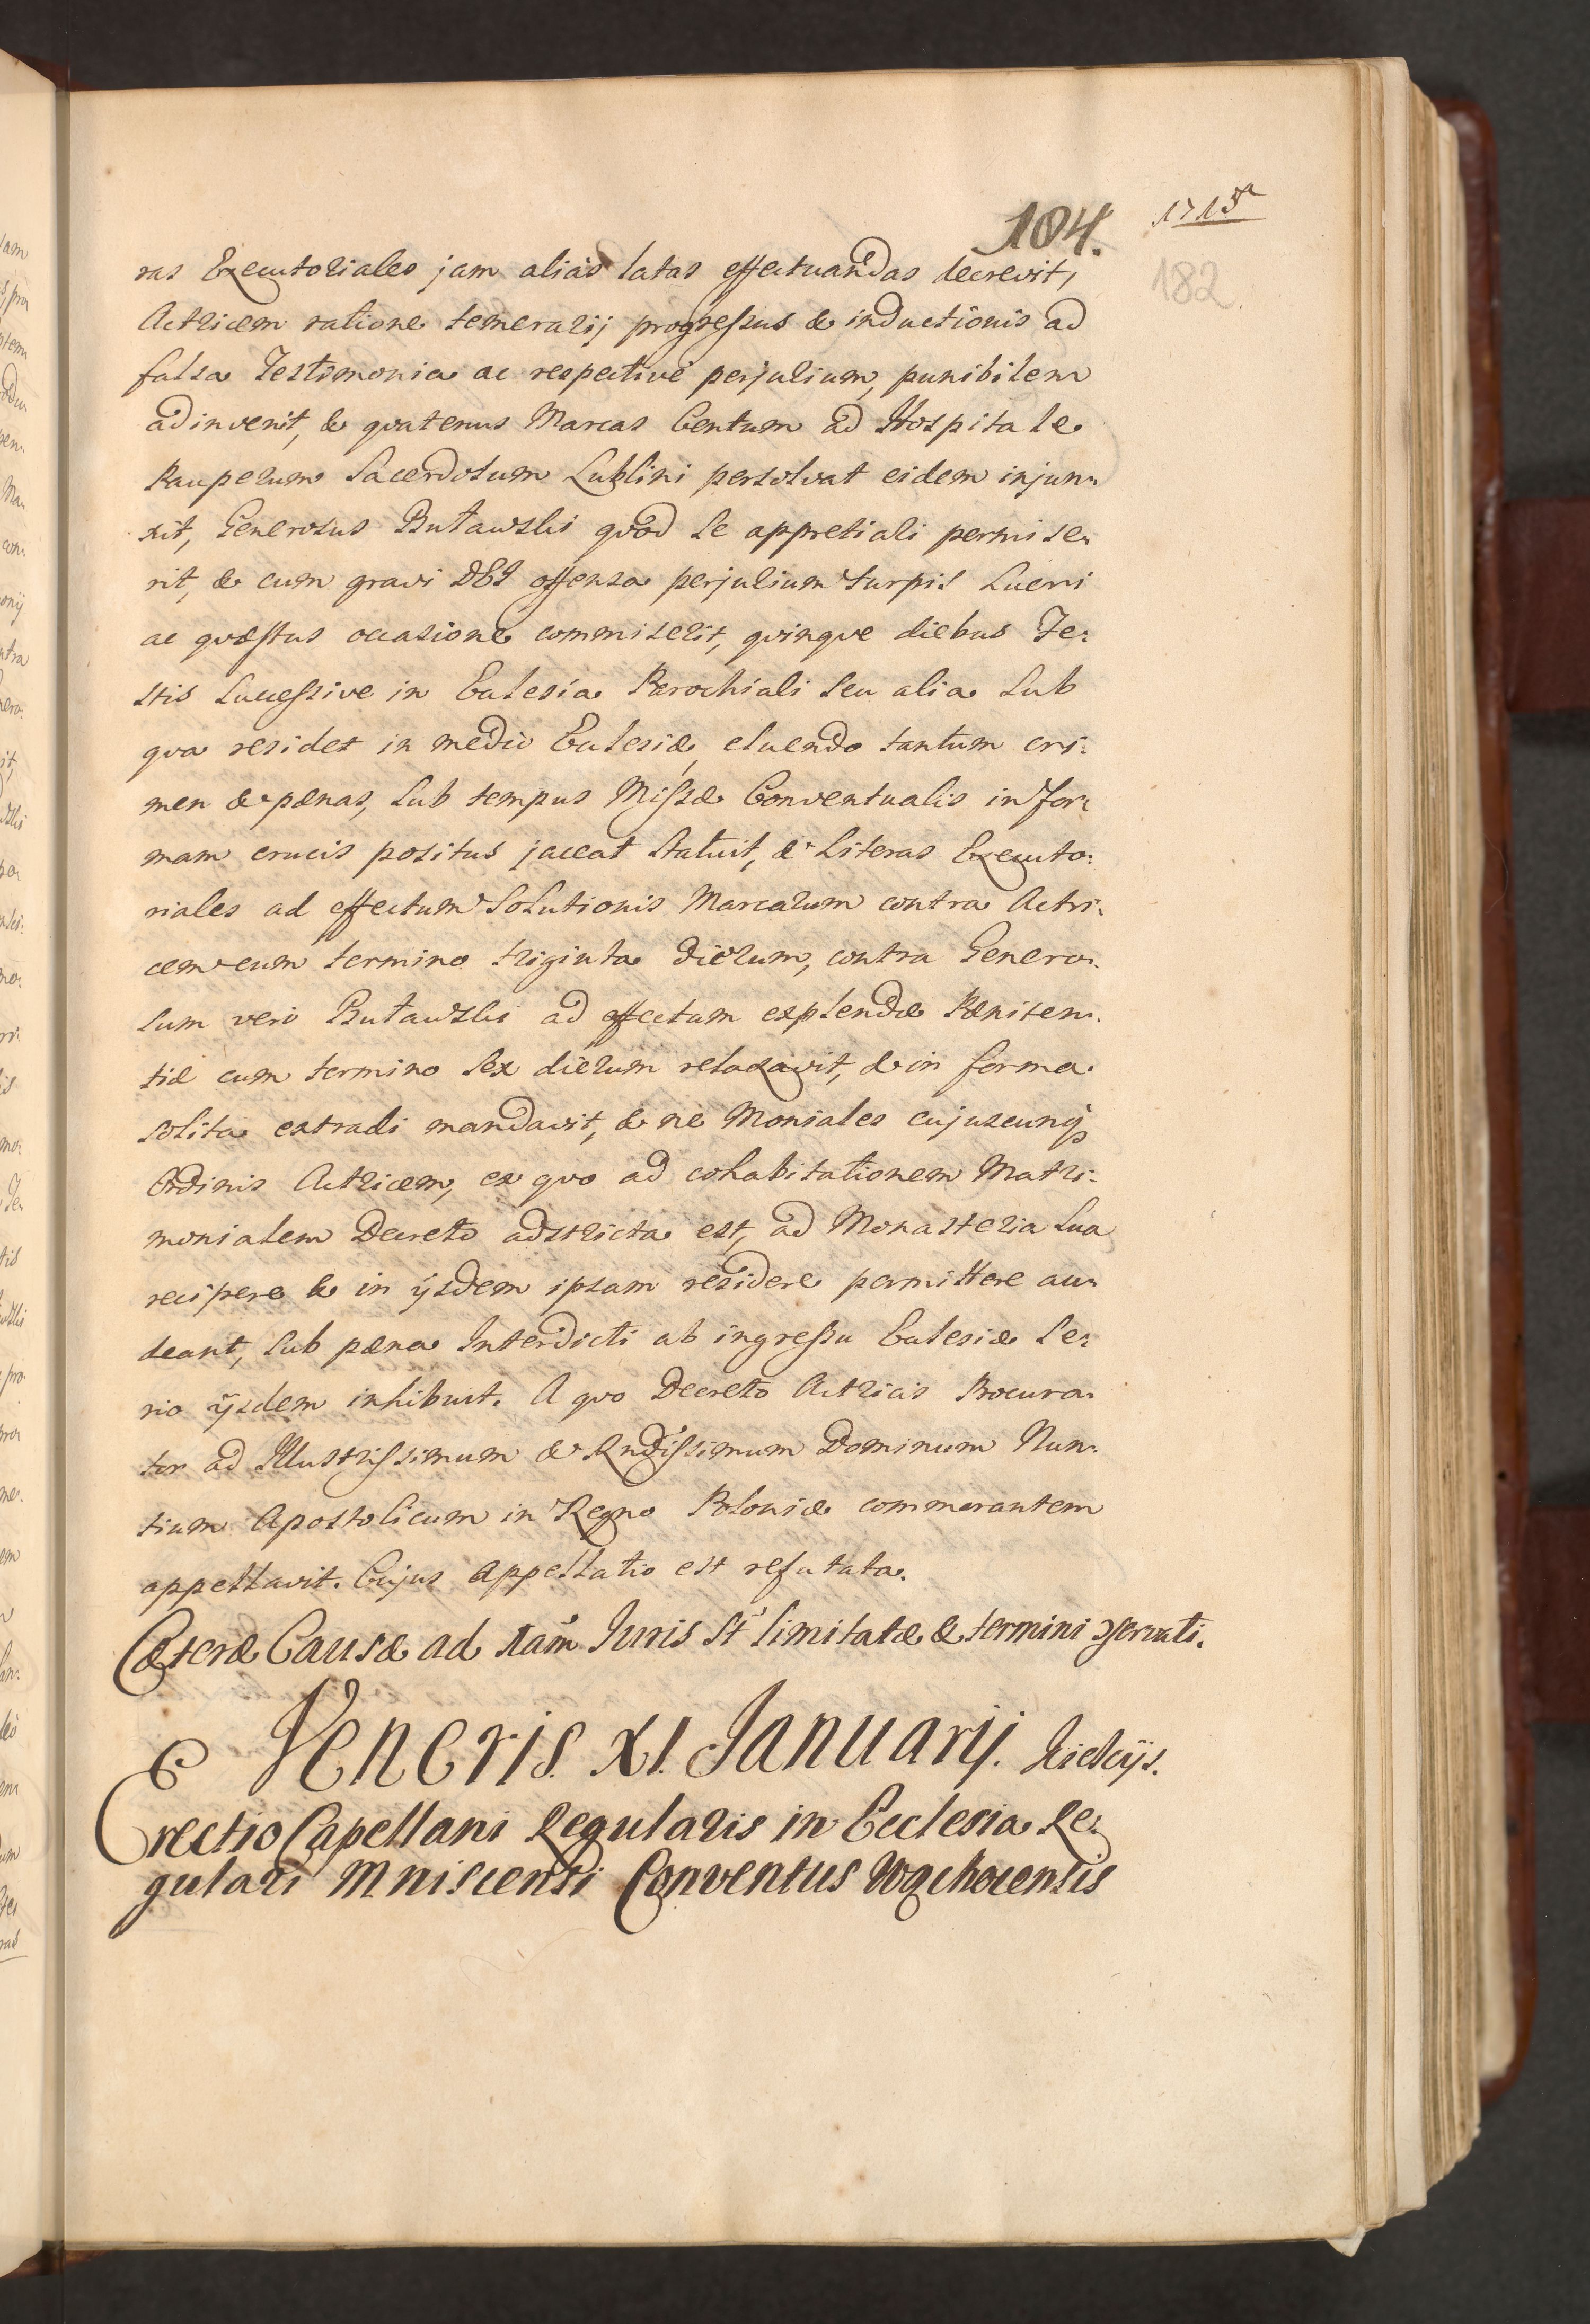 184.
1715ª
182.
ras Executoriales jam alias latas effectuandas decrevit,
Actricem ratione temerarij progressus & inductionis ad
falsa Testimonia ac respectivè perjurium, punibilem
adinvenit, & quatenus Marcas Centum ad Hospitale
Pauperum Sacerdotum Lublini persolvat eidem injun:
xit, Generosus Butawski quod se appretiari permise:
rit, & cum gravi DEI offensa perjurium turpis Lucri
ac quæstus occasione commiserit, quinque diebus Fe:
stis successive in Eclesia Parochiali seu alia sub
qua residet in medio Eclesiæ, eluendo tantum cri:
men & pænas, sub tempus Missæ Conventualis in for:
mam crucis positus jaceat statuit, & Literas Executo:
riales ad effectum Solutionis Marcarum contra Actri:
cem cum termino triginta dierum, contra Genero:
sum verò Butawski ad effectum explendæ Pæniten:
tiæ cum termino sex dierum relaxavit, & in forma
solita extradi mandavit, & ne Moniales cujuscunq
Ordinis Actricem, ex quo ad cohabitationem Matri:
monialem Decreto adstricta est, ad Monasteria sua
recipere & in ijsdem ipsam residere permittere au:
deant, sub pæna Interdicti ab ingressu Eclesiæ se:
rio ijsdem inhibuit. A quo Decreto Actricis Procura:
tor ad Illustrissimum & Rndissimum Dominum Nun:
tium Apostolicum in Regno Poloniæ commorantem
appellavit. Cujus Appellatio est refutata.
Cæteræ Causæ ad stam Juris st limitatæ & termini ɔservati.
Veneris. XI. Januarij. Kielcijs.
Erectio Capellani Regularis in Ecclesia Re:
gulari Mniscensi Conventus Wąchocensis